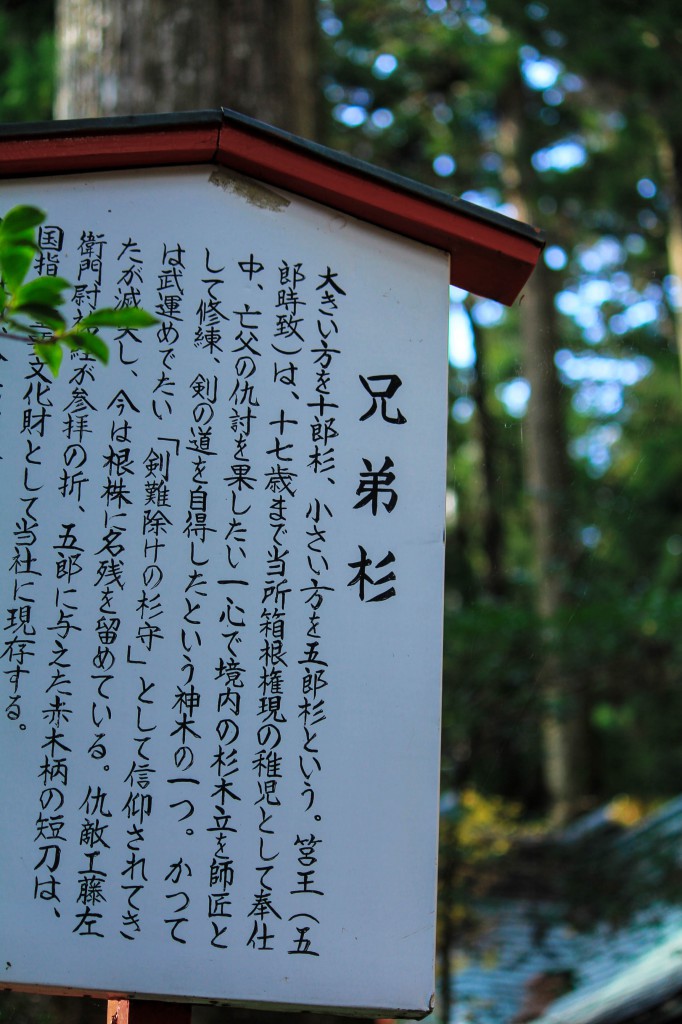 兄弟杉
大きい方を十郎杉、小さい方を五郎杉という。筥王(五
郎時致)は、十七歳まで当所箱根権現の稚児として奉仕
中、亡父の仇討を果したい一心で境内の杉木立を師匠と
して修練、剣の道を自得したという神木の一つ。かつて
は武運めでたい「剣難除けの杉守」として信仰されてき
たが滅失し、今は根株に名残を留めている。仇敵工藤左
衛門尉祐経が参拝の折、五郎に与えた赤木柄の短刀は、
国指 文化財として当社に現存する。